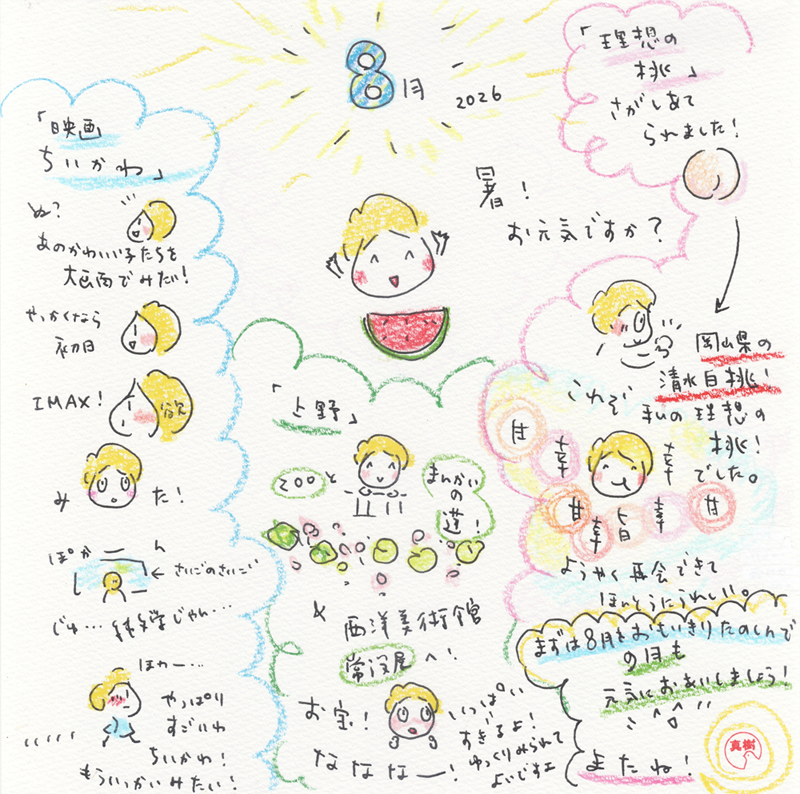 8月 2026
暑!
お元気ですか?
「映画
ちいかわ」
ぬ?
あのかわいい子たちを
大画面でみたい!
せっかくなら
初日
IMAX!
みた!
ぽかーーん
← さいごのさいごい
じゅ…純文学じゃん…
ほわー…
やっぱり
すごいわ
ちいかわ!
もういっかいみたい!
「上野」
ZOOと
まんかい
の
蓮!
西洋美術館
常設展へ!
お宝!
ななな ー!
いっぱい
すぎるよ!
ゆっくりみられて
よいですよ
「理想の
桃」
さがしあて
られました!
岡山県の
清水白桃!
これぞ
私の理想の
桃!
でした。
甘
幸
幸
甘
幸
旨
幸
甘
ようやく再会できて
ほんとうにうれしい。
まずは8月をおもいきりたのしんで
9月も
元気におあいしましょう!
またね!
真樹